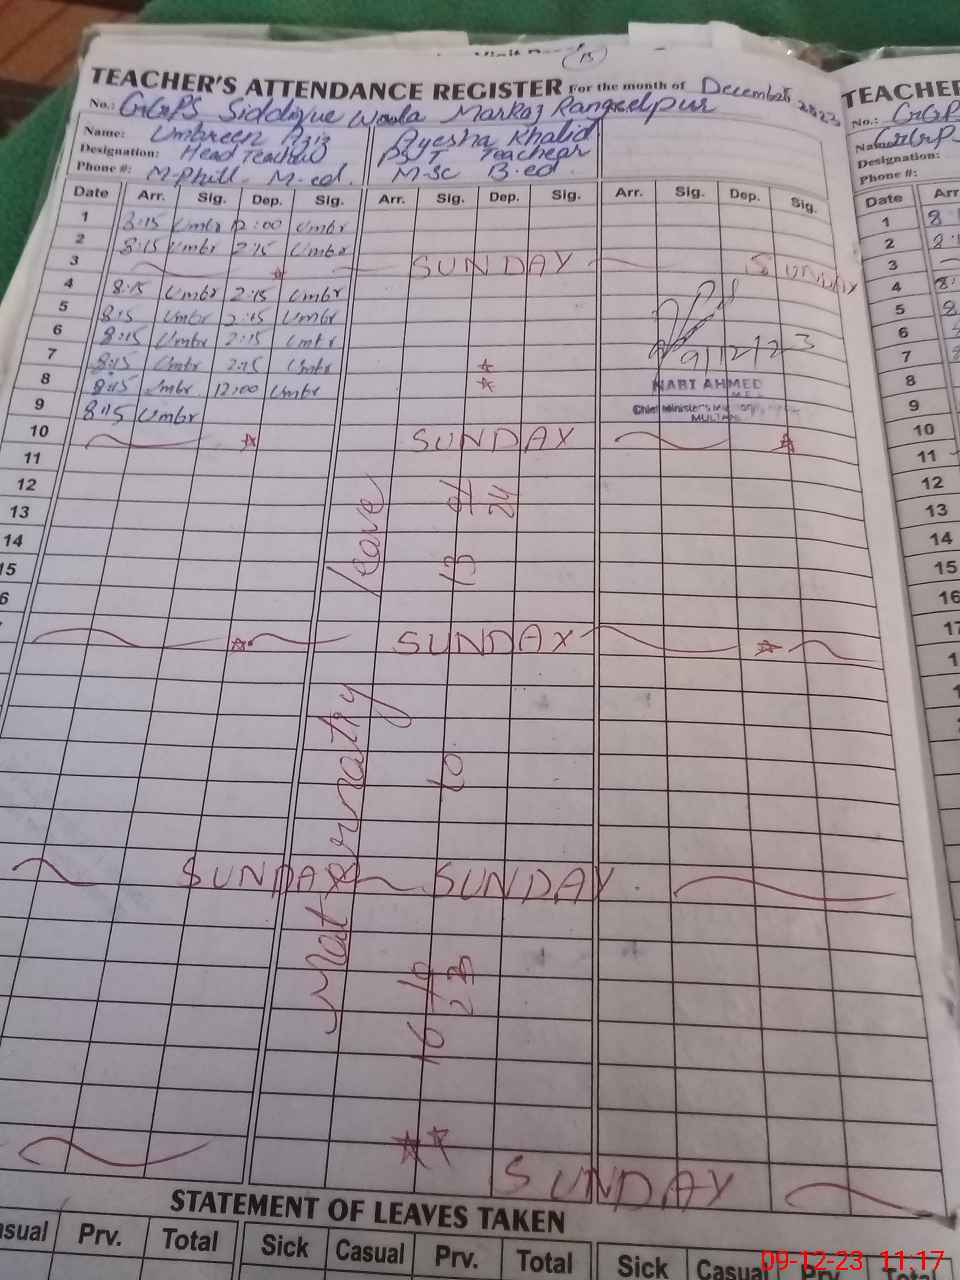 TEACHER'S ATTENDANCE REGISTER For the month of December 2023
No.: GGPS Siddique Waala Markaz Rangeelpur
Name: Umbreen Aziz Ayesha Khalid
Designation: Head Teacher PST Teacher
Phone #: M-Phill. M-ed. M-Sc B-ed.
Date Arr. Sig. Dep. Sig. Arr. Sig. Dep. Sig. Arr. Sig. Dep. Sig.
1 8:15 Umbr 12:00 Umbr
2 8:15 Umbr 2:15 Umbr
3 SUNDAY SUNDAY
4 8:15 Umbr 2:15 Umbr
5 8:15 Umbr 2:15 Umbr
6 8:15 Umbr 2:15 Umbr
7 8:15 Umbr 2:15 Umbr
8 8:15 Umbr 12:00 Umbr
9 8:15 Umbr
9/12/23
NABI AHMED
Chief Minister's
MULTAN
10 SUNDAY
11
12
13
14
15
6
SUNDAY
SUNDAY SUNDAY
SUNDAY
Maternatry leave
16/10/23 to 13/01/24
STATEMENT OF LEAVES TAKEN
asual Prv. Total Sick Casual Prv. Total Sick Casual Prv. Total
TEACHE
No.: GGP
Name:
Designation:
Phone #:
Date Arr
1 8:
2
3
4 8:
5 8
6
7
8
9
10
11
12
13
14
15
16
17
1
09-12-23 11:17